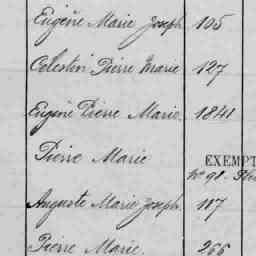 Eugène Marie Joseph 105
Célestin Pierre Marie 127
Eugène Pierre Marie. 1841
Pierre Marie
EXEMPT
N° 98.
Auguste Marie Joseph. 117
Pierre Marie. 266